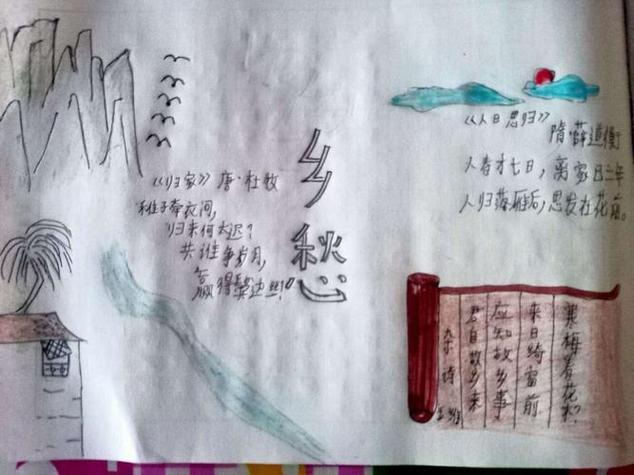 乡愁
《归家》唐·杜牧
稚子牵衣问,
归来何太迟?
共谁争岁月,
赢得鬓边丝!
《人日思归》
隋·薛道衡
人春才七日,离家已二年
人归落雁后,思发在花前。
杂诗 王维
君自故乡来
应知故乡事
来日绮窗前
寒梅着花未?